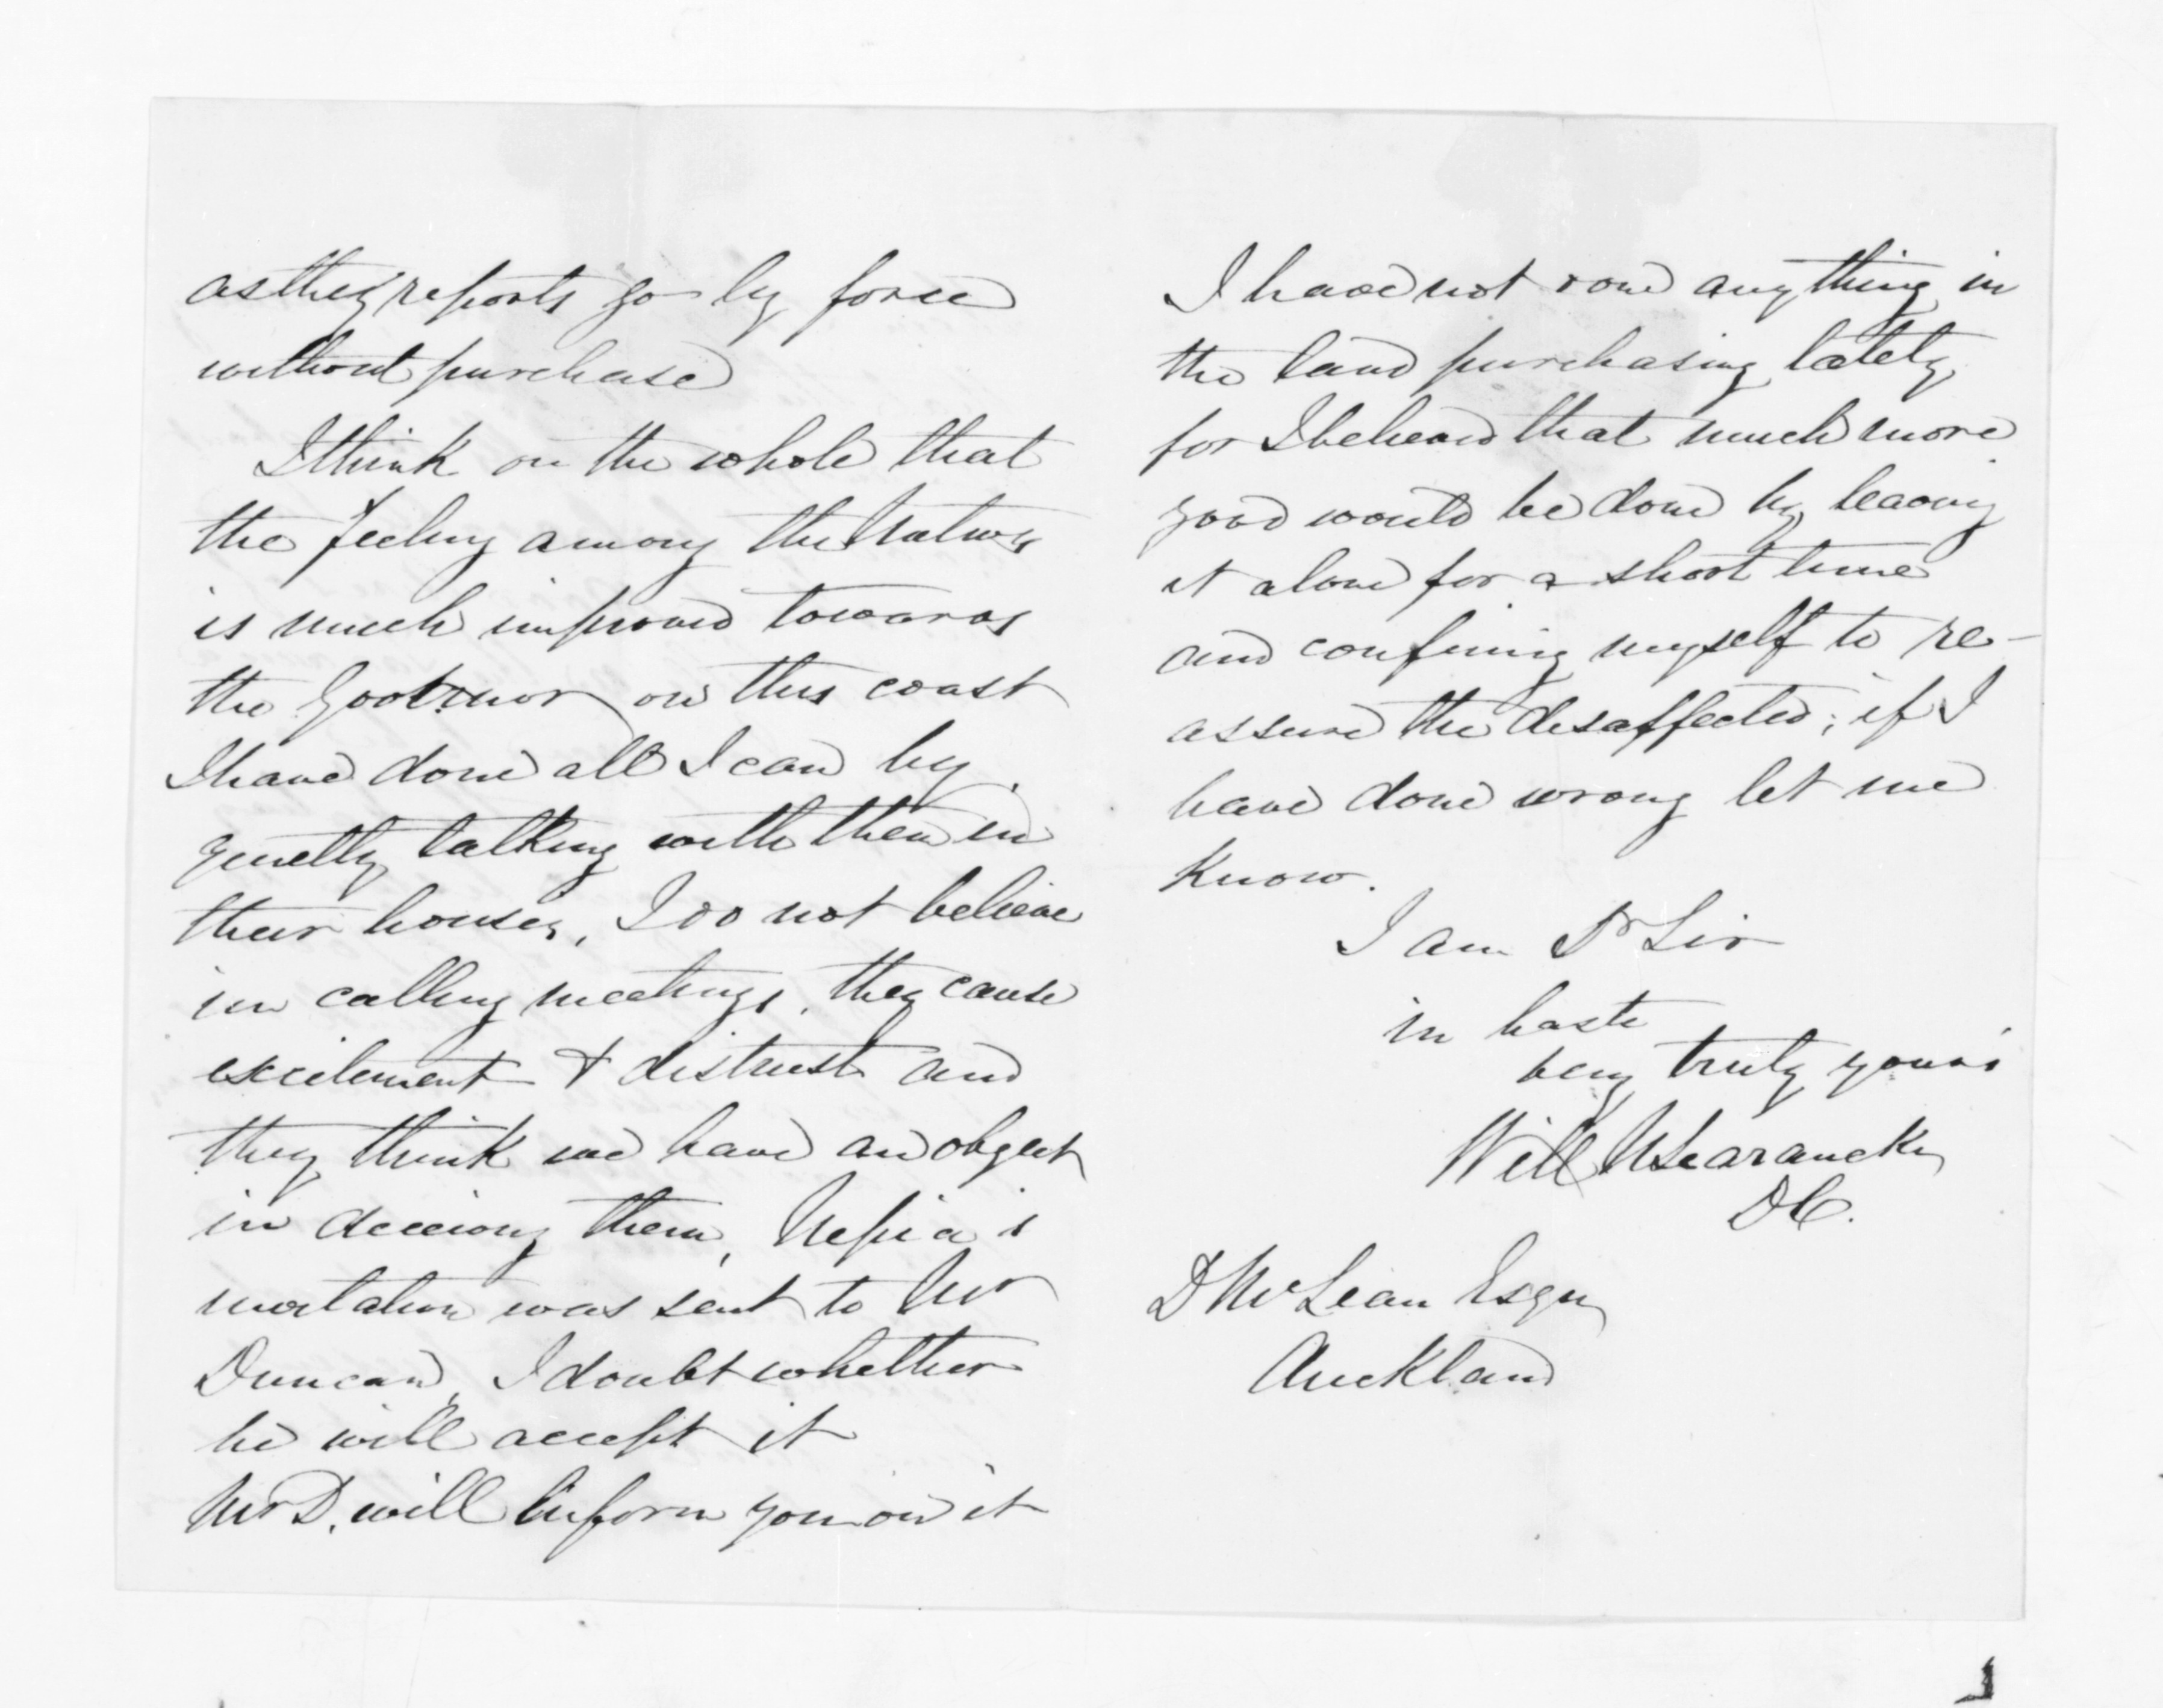 as they reports go by force
without purchase
I think on the whole that
the feeling among the Natives
is much improved towards
the Governor on this coast
I have done all I can by
quietly talking with them in
their houses, I do not believe
in calling meetings, they cause
excitement & distrust and
they think we have an object
in deceiving them, Nepia's
invitation was sent to Mr
Duncan, I doubt whether
he will accept it
Mr D. will inform you on it
I have not done anything in
the land purchasing lately,
for I believed that much more
good would be done by leaving
it alone for a short time
and confining myself to re-
assure the disaffected; if I
have done wrong let me
know.
I am Dr Sir
in haste
very truly yours
Will N Searancke
DC.
D McLean Esqre
Auckland